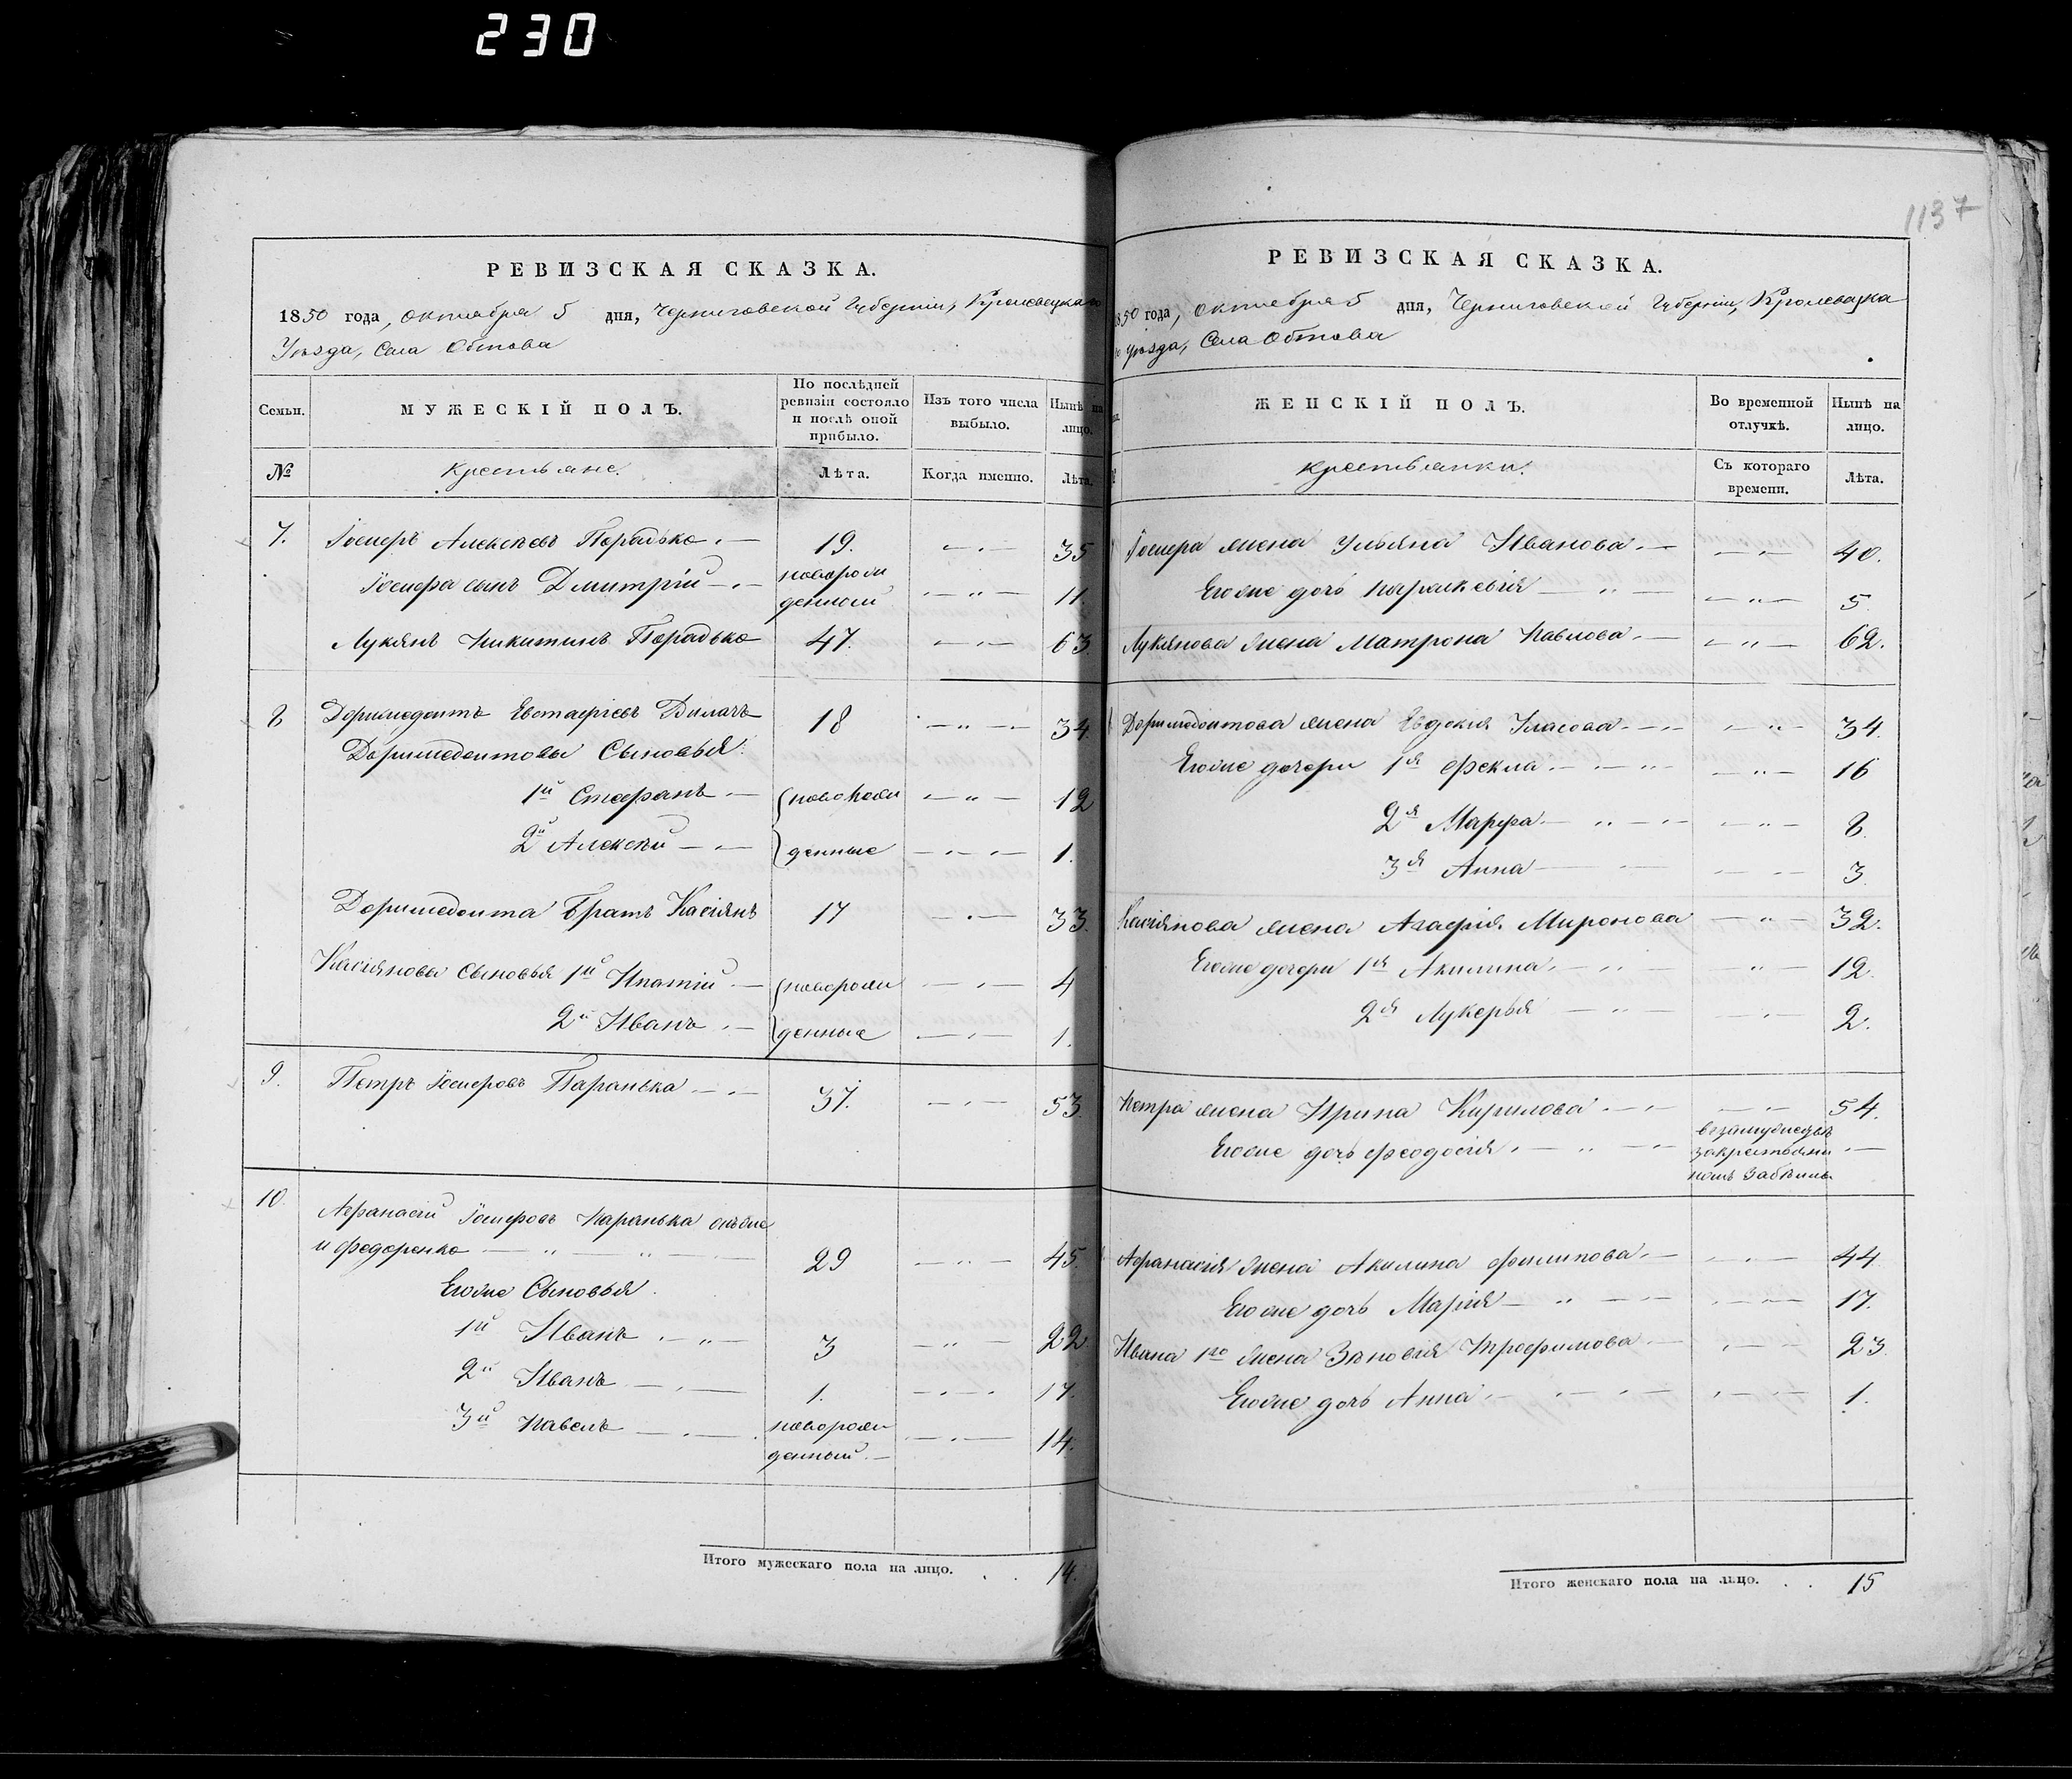 230
1137
РЕВИЗСКАЯ СКАЗКА.
1850 года, октября 5 дня, Черниговской Губерніи, Кролевецкаго
Уѣзда, Села Обтова
Семьи. МУЖЕСКІЙ ПОЛЪ. По послѣдней ревизіи состояло и послѣ оной прибыло. Изъ того числа выбыло. Нынѣ на лицо.
№ Крестьяне. Лѣта. Когда именно. Лѣта.
7. Іосифъ Алексѣевъ Порадько 19. 35
Іосифа сынъ Дмитрій новорожденный 11.
Лукянъ Никитинъ Порадько 47. 63.
8 Доримедонтъ Евстафіевъ 18 34.
Доримедонтовы Сыновья:
1й Стефанъ новорож 12
2й Алексѣй денные 1.
Доримедонта Братъ Касіянъ 17 33.
Касіяновы Сыновья 1й Ипатій новорож 4
2й Иванъ денные 1.
9. Петръ Іосифовъ Паранька 37. 53.
10. Афанасій Іосифовъ Паранька онъ же
и Федоренко 29 45.
Его же Сыновья
1й Иванъ 3 22
2й Иванъ 1. 17
3й Павелъ новорожденный 14.
Итого мужескаго пола на лицо. . . 14.
РЕВИЗСКАЯ СКАЗКА.
1850 года, октября 5 дня, Черниговской Губерніи, Кролевецка
го уѣзда, Села Обтова
ЖЕНСКІЙ ПОЛЪ. Во временной отлучкѣ. Нынѣ на лицо.
Крестьянки. Съ котораго времени. Лѣта.
Іосифа жена Ульяна Иванова 40.
Его же дочь Параскевія 5
Лукянова жена Матрона Павлова 62.
Доримедонтова жена Евдокия Власова 34.
Его же дочери 1я Фекла 16
2я Марфа 8.
3я Анна 3
Касіянова жена Агафія Миронова 32.
Его же дочери 1я Акилина 12
2я Лукерья 2.
Петра жена Ирина Кирилова 54.
Его же дочь Феодосія взамужествѣ закрестьяниномъ
Афанасія жена Акилина Филипова 44
Его же дочь Марія 17.
Ивана 1го жена Зѣновія Трофимова 23
Его же дочь Анна 1.
Итого женскаго пола на лицо. . . 15